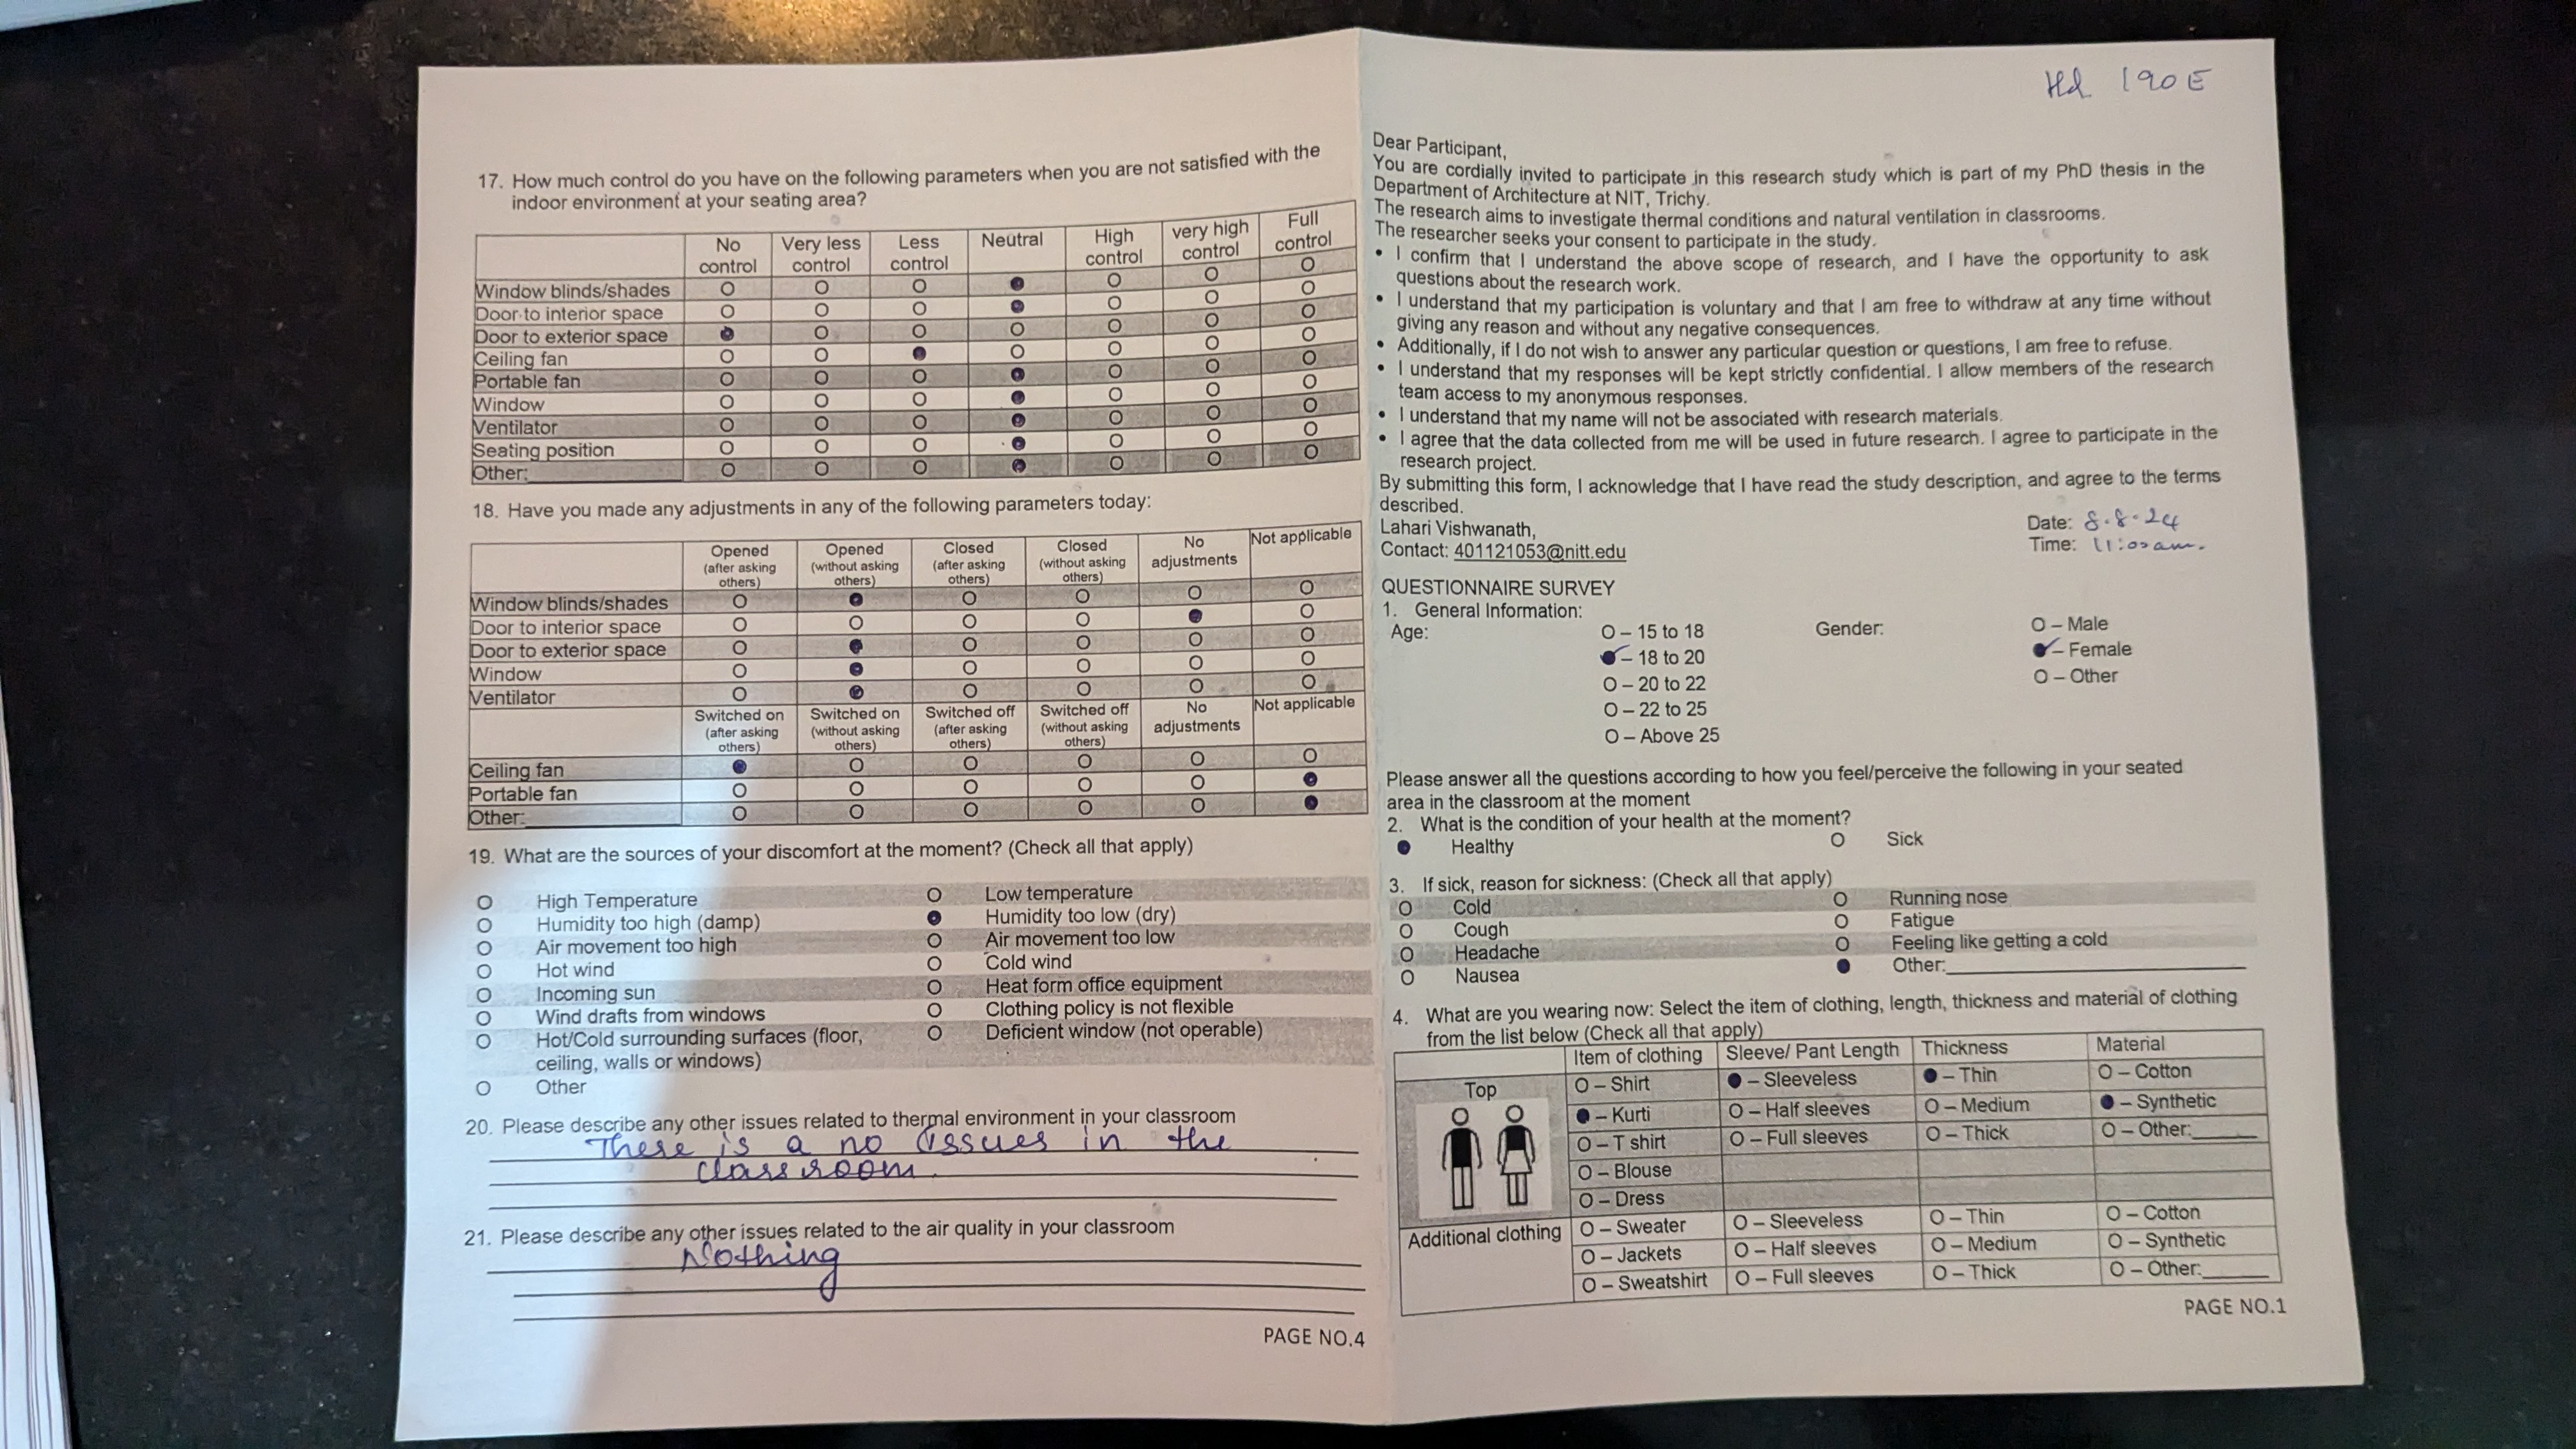 17. How much control do you have on the following parameters when you are not satisfied with the
indoor environment at your seating area?
No control Very less control Less control Neutral High control very high control Full control
Window blinds/shades O O O ● O O O
Door to interior space O O O ● O O O
Door to exterior space ● O O O O O O
Ceiling fan O O ● O O O O
Portable fan O O O ● O O O
Window O O O ● O O O
Ventilator O O O ● O O O
Seating position O O O ● O O O
Other: O O O ● O O O
18. Have you made any adjustments in any of the following parameters today:
Opened (after asking others) Opened (without asking others) Closed (after asking others) Closed (without asking others) No adjustments Not applicable
Window blinds/shades O ● O O O O
Door to interior space O O O O ● O
Door to exterior space O ● O O O O
Window O ● O O O O
Ventilator O ● O O O O
Switched on (after asking others) Switched on (without asking others) Switched off (after asking others) Switched off (without asking others) No adjustments Not applicable
Ceiling fan ● O O O O O
Portable fan O O O O O ●
Other: O O O O O ●
19. What are the sources of your discomfort at the moment? (Check all that apply)
O High Temperature O Low temperature
O Humidity too high (damp) ● Humidity too low (dry)
O Air movement too high O Air movement too low
O Hot wind O Cold wind
O Incoming sun O Heat form office equipment
O Wind drafts from windows O Clothing policy is not flexible
O Hot/Cold surrounding surfaces (floor, O Deficient window (not operable)
ceiling, walls or windows)
O Other
20. Please describe any other issues related to thermal environment in your classroom
There is a no issues in the
classroom.
21. Please describe any other issues related to the air quality in your classroom
Nothing
PAGE NO.4
190E
Dear Participant,
You are cordially invited to participate in this research study which is part of my PhD thesis in the
Department of Architecture at NIT, Trichy.
The research aims to investigate thermal conditions and natural ventilation in classrooms.
The researcher seeks your consent to participate in the study.
• I confirm that I understand the above scope of research, and I have the opportunity to ask
questions about the research work.
• I understand that my participation is voluntary and that I am free to withdraw at any time without
giving any reason and without any negative consequences.
• Additionally, if I do not wish to answer any particular question or questions, I am free to refuse.
• I understand that my responses will be kept strictly confidential. I allow members of the research
team access to my anonymous responses.
• I understand that my name will not be associated with research materials.
• I agree that the data collected from me will be used in future research. I agree to participate in the
research project.
By submitting this form, I acknowledge that I have read the study description, and agree to the terms
described.
Lahari Vishwanath, Date: 8.8.24
Contact: 401121053@nitt.edu Time: 11:00am.
QUESTIONNAIRE SURVEY
1. General Information:
Age: O – 15 to 18 Gender: O – Male
● – 18 to 20 ● – Female
O – 20 to 22 O – Other
O – 22 to 25
O – Above 25
Please answer all the questions according to how you feel/perceive the following in your seated
area in the classroom at the moment
2. What is the condition of your health at the moment?
● Healthy O Sick
3. If sick, reason for sickness: (Check all that apply)
O Cold O Running nose
O Cough O Fatigue
O Headache O Feeling like getting a cold
O Nausea ● Other:
4. What are you wearing now: Select the item of clothing, length, thickness and material of clothing
from the list below (Check all that apply)
Item of clothing Sleeve/ Pant Length Thickness Material
Top O – Shirt ● – Sleeveless ● – Thin O – Cotton
● – Kurti O – Half sleeves O – Medium ● – Synthetic
O – T shirt O – Full sleeves O – Thick O – Other:
O – Blouse
O – Dress
Additional clothing O – Sweater O – Sleeveless O – Thin O – Cotton
O – Jackets O – Half sleeves O – Medium O – Synthetic
O – Sweatshirt O – Full sleeves O – Thick O – Other:
PAGE NO.1